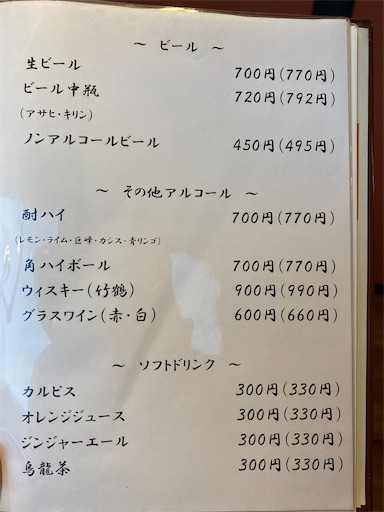 ～ ビール ～
生ビール 700円(770円)
ビール中瓶 720円(792円)
(アサヒ・キリン)
ノンアルコールビール 450円(495円)
～ その他アルコール ～
酎ハイ 700円(770円)
(レモン・ライム・巨峰・カシス・青リンゴ)
角ハイボール 700円(770円)
ウィスキー(竹鶴) 900円(990円)
グラスワイン(赤・白) 600円(660円)
～ ソフトドリンク ～
カルピス 300円(330円)
オレンジジュース 300円(330円)
ジンジャーエール 300円(330円)
烏龍茶 300円(330円)